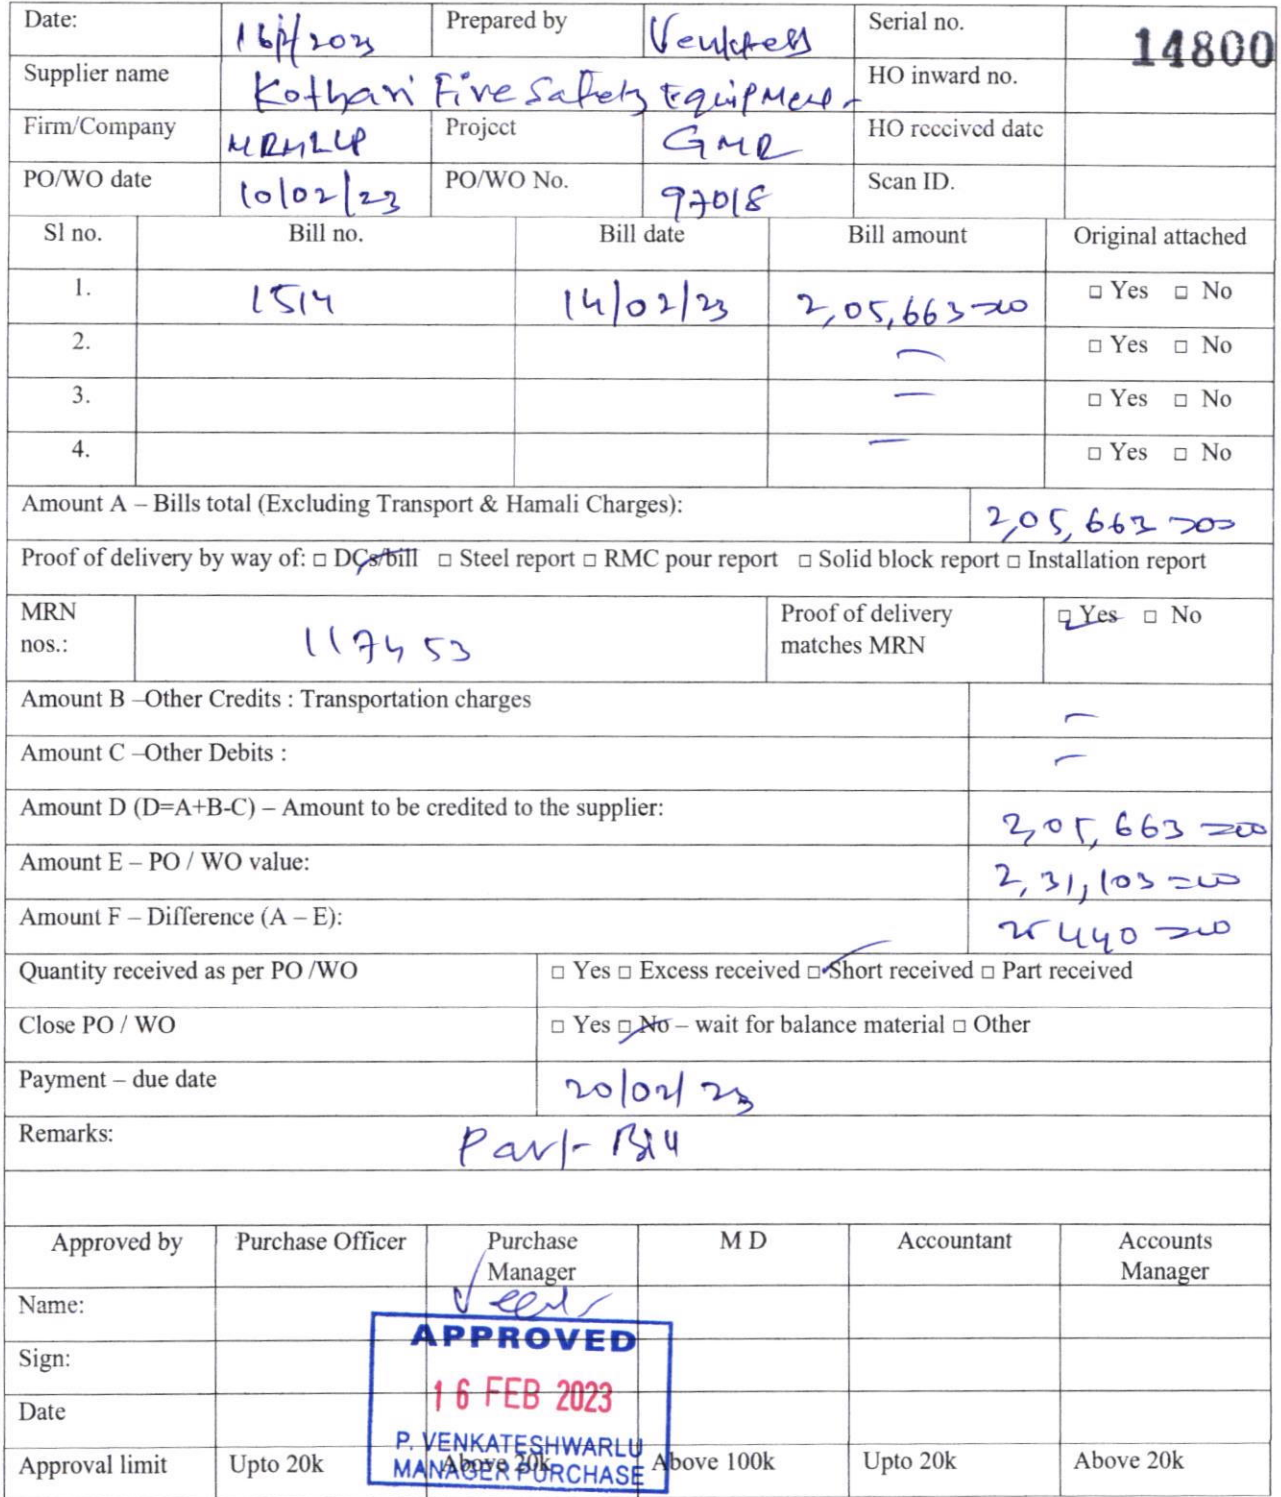 Date: 16/2/2023 Prepared by Venkatesh Serial no. 14800
Supplier name Kothari Fire Safety Equipment HO inward no.
Firm/Company MRMLLP Project GMR HO received date
PO/WO date 10/02/23 PO/WO No. 97018 Scan ID.
Sl no. Bill no. Bill date Bill amount Original attached
1. 1514 14/02/23 2,05,663=00 □ Yes □ No
2. — □ Yes □ No
3. — □ Yes □ No
4. — □ Yes □ No
Amount A – Bills total (Excluding Transport & Hamali Charges): 2,05,663=00
Proof of delivery by way of: □ DCs/bill □ Steel report □ RMC pour report □ Solid block report □ Installation report
MRN nos.: 117453 Proof of delivery matches MRN □ Yes □ No
Amount B –Other Credits : Transportation charges —
Amount C –Other Debits : —
Amount D (D=A+B-C) – Amount to be credited to the supplier: 2,05,663=00
Amount E – PO / WO value: 2,31,103=00
Amount F – Difference (A – E): 25440=00
Quantity received as per PO /WO □ Yes □ Excess received □ Short received □ Part received
Close PO / WO □ Yes □ No – wait for balance material □ Other
Payment – due date 20/02/23
Remarks: Part-Bill
Approved by Purchase Officer Purchase Manager M D Accountant Accounts Manager
Name:
APPROVED
Sign:
16 FEB 2023
Date
P. VENKATESHWARLU
MANAGER PURCHASE
Approval limit Upto 20k Above 20k Above 100k Upto 20k Above 20k